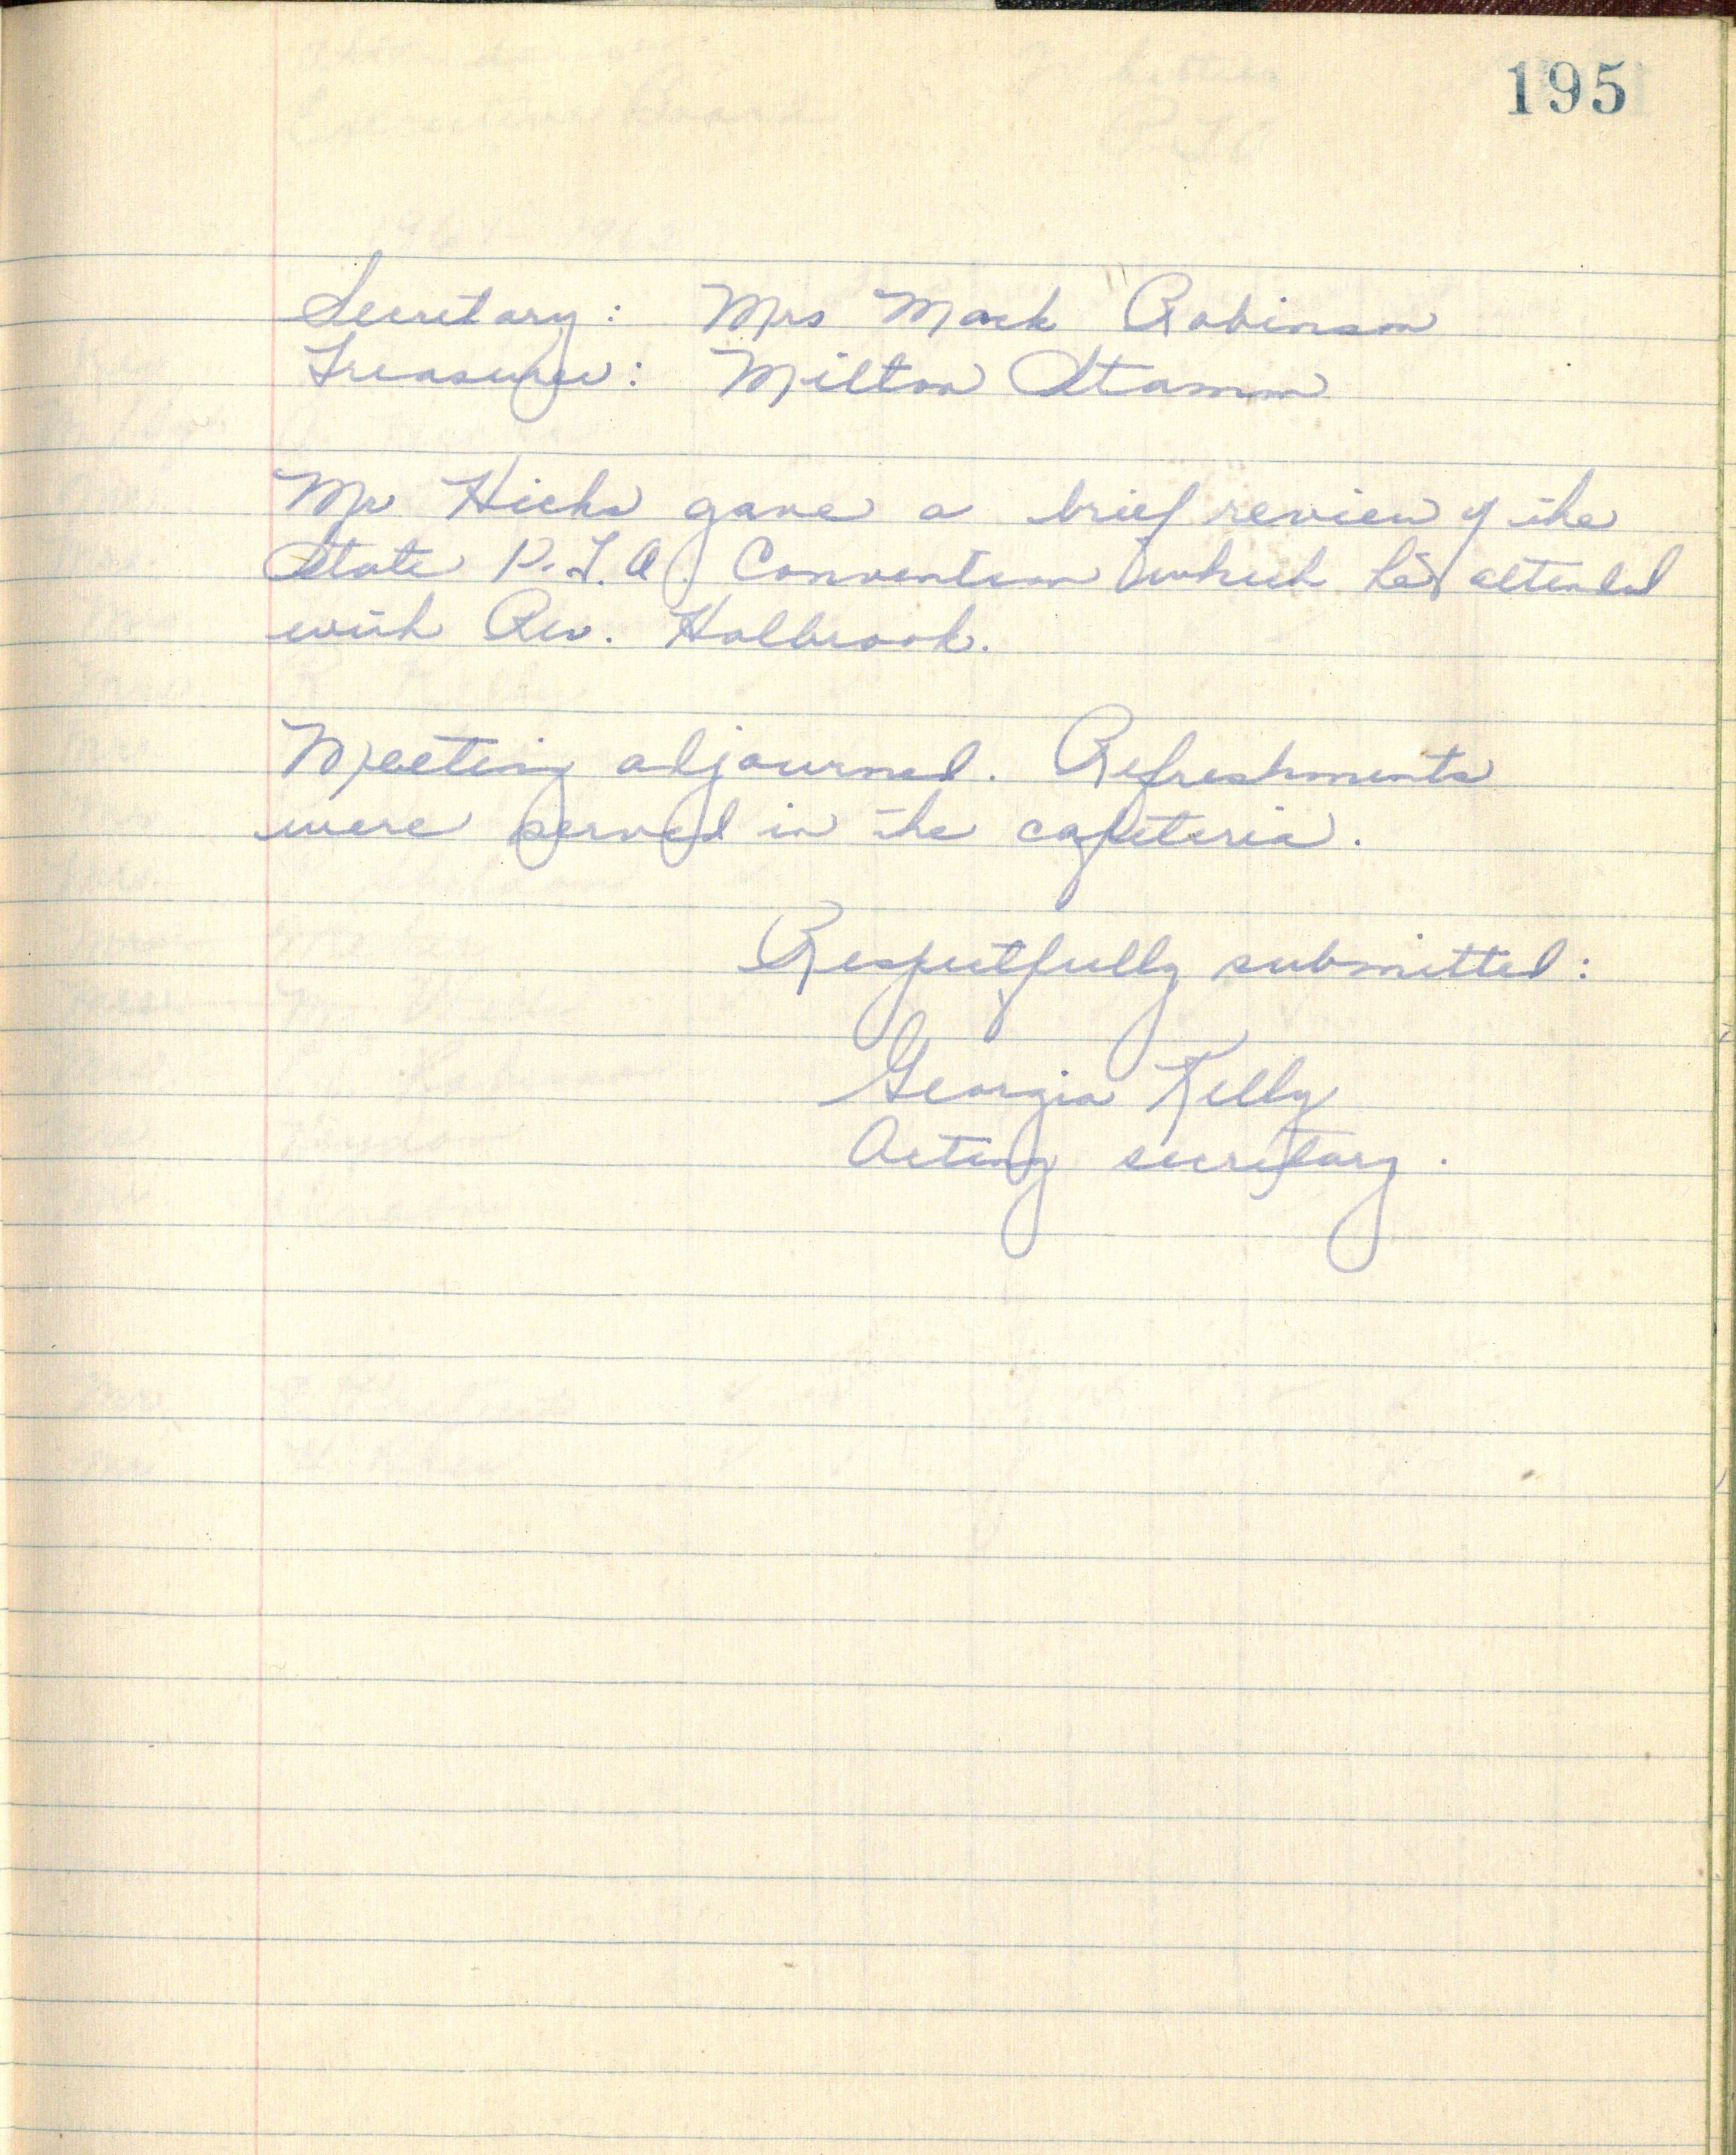 195
Secretary: Mrs Mack Robinson
Treasurer: Milton Stamm
Mr Hicks gave a brief review of the
State P.T.A. Convention which he attended
with Rev. Holbrook.
Meeting adjourned. Refreshments
were served in the cafeteria.
Respectfully submitted:
Georgia Kelly
Acting secretary.